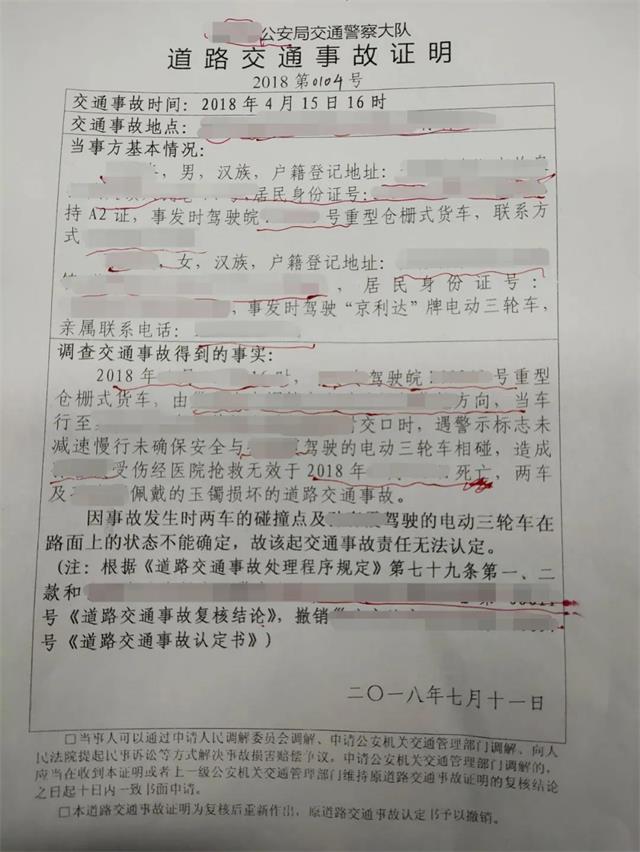 公安局交通警察大队
道路交通事故证明
2018 第0104号
交通事故时间：2018 年 4 月 15 日 16 时
交通事故地点：
当事方基本情况：
，男，汉族，户籍登记地址：
，居民身份证号：
持 A2 证，事发时驾驶皖 号重型仓栅式货车，联系方
式
，女，汉族，户籍登记地址：
，居民身份证号：
，事发时驾驶“京利达”牌电动三轮车，
亲属联系电话：
调查交通事故得到的事实：
2018 年 时， 驾驶皖 号重型
仓栅式货车，由 方向，当车
行至 交口时，遇警示标志未
减速慢行未确保安全与 驾驶的电动三轮车相碰，造成
受伤经医院抢救无效于 2018 年 死亡，两车
及 佩戴的玉镯损坏的道路交通事故。
因事故发生时两车的碰撞点及 驾驶的电动三轮车在
路面上的状态不能确定，故该起交通事故责任无法认定。
(注：根据《道路交通事故处理程序规定》第七十九条第一、二
款和
号《道路交通事故复核结论》，撤销
号《道路交通事故认定书》)
二〇一八年七月十一日
□当事人可以通过申请人民调解委员会调解、申请公安机关交通管理部门调解、向人
民法院提起民事诉讼等方式解决事故损害赔偿争议。申请公安机关交通管理部门调解的，
应当在收到本证明或者上一级公安机关交通管理部门维持原道路交通事故证明的复核结论
之日起十日内一致书面申请。
□本道路交通事故证明为复核后重新作出，原道路交通事故认定书予以撤销。